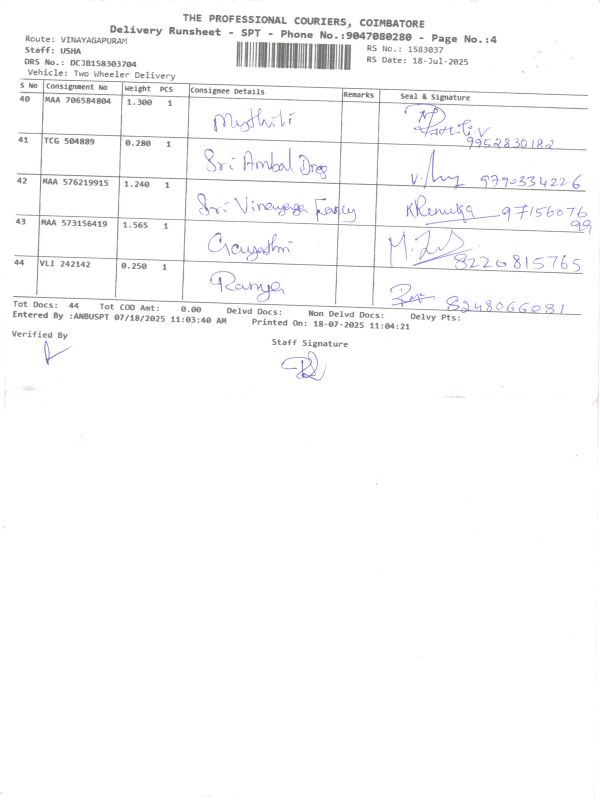 THE PROFESSIONAL COURIERS, COIMBATORE
Delivery Runsheet - SPT - Phone No.:9047080280 - Page No.:4
Route: VINAYAGAPURAM RS No.: 1583037
Staff: USHA RS Date: 18-Jul-2025
DRS No.: DCJB158303704
Vehicle: Two Wheeler Delivery
S No Consignment No Weight PCS Consignee Details Remarks Seal & Signature
40 MAA 706584804 1.300 1 Mythili 9952830182
41 TCG 504889 0.280 1 Sri Ambal Drog 9790334226
42 MAA 576219915 1.240 1 Sri Vinayaga Fancy K Renuka 97156076
99
43 MAA 573156419 1.565 1 Gayathri 8220815765
44 VLI 242142 0.250 1 Ramya 8248066081
Tot Docs: 44 Tot COD Amt: 0.00 Delvd Docs: Non Delvd Docs: Delvy Pts:
Entered By :ANBUSPT 07/18/2025 11:03:40 AM Printed On: 18-07-2025 11:04:21
Verified By
Staff Signature